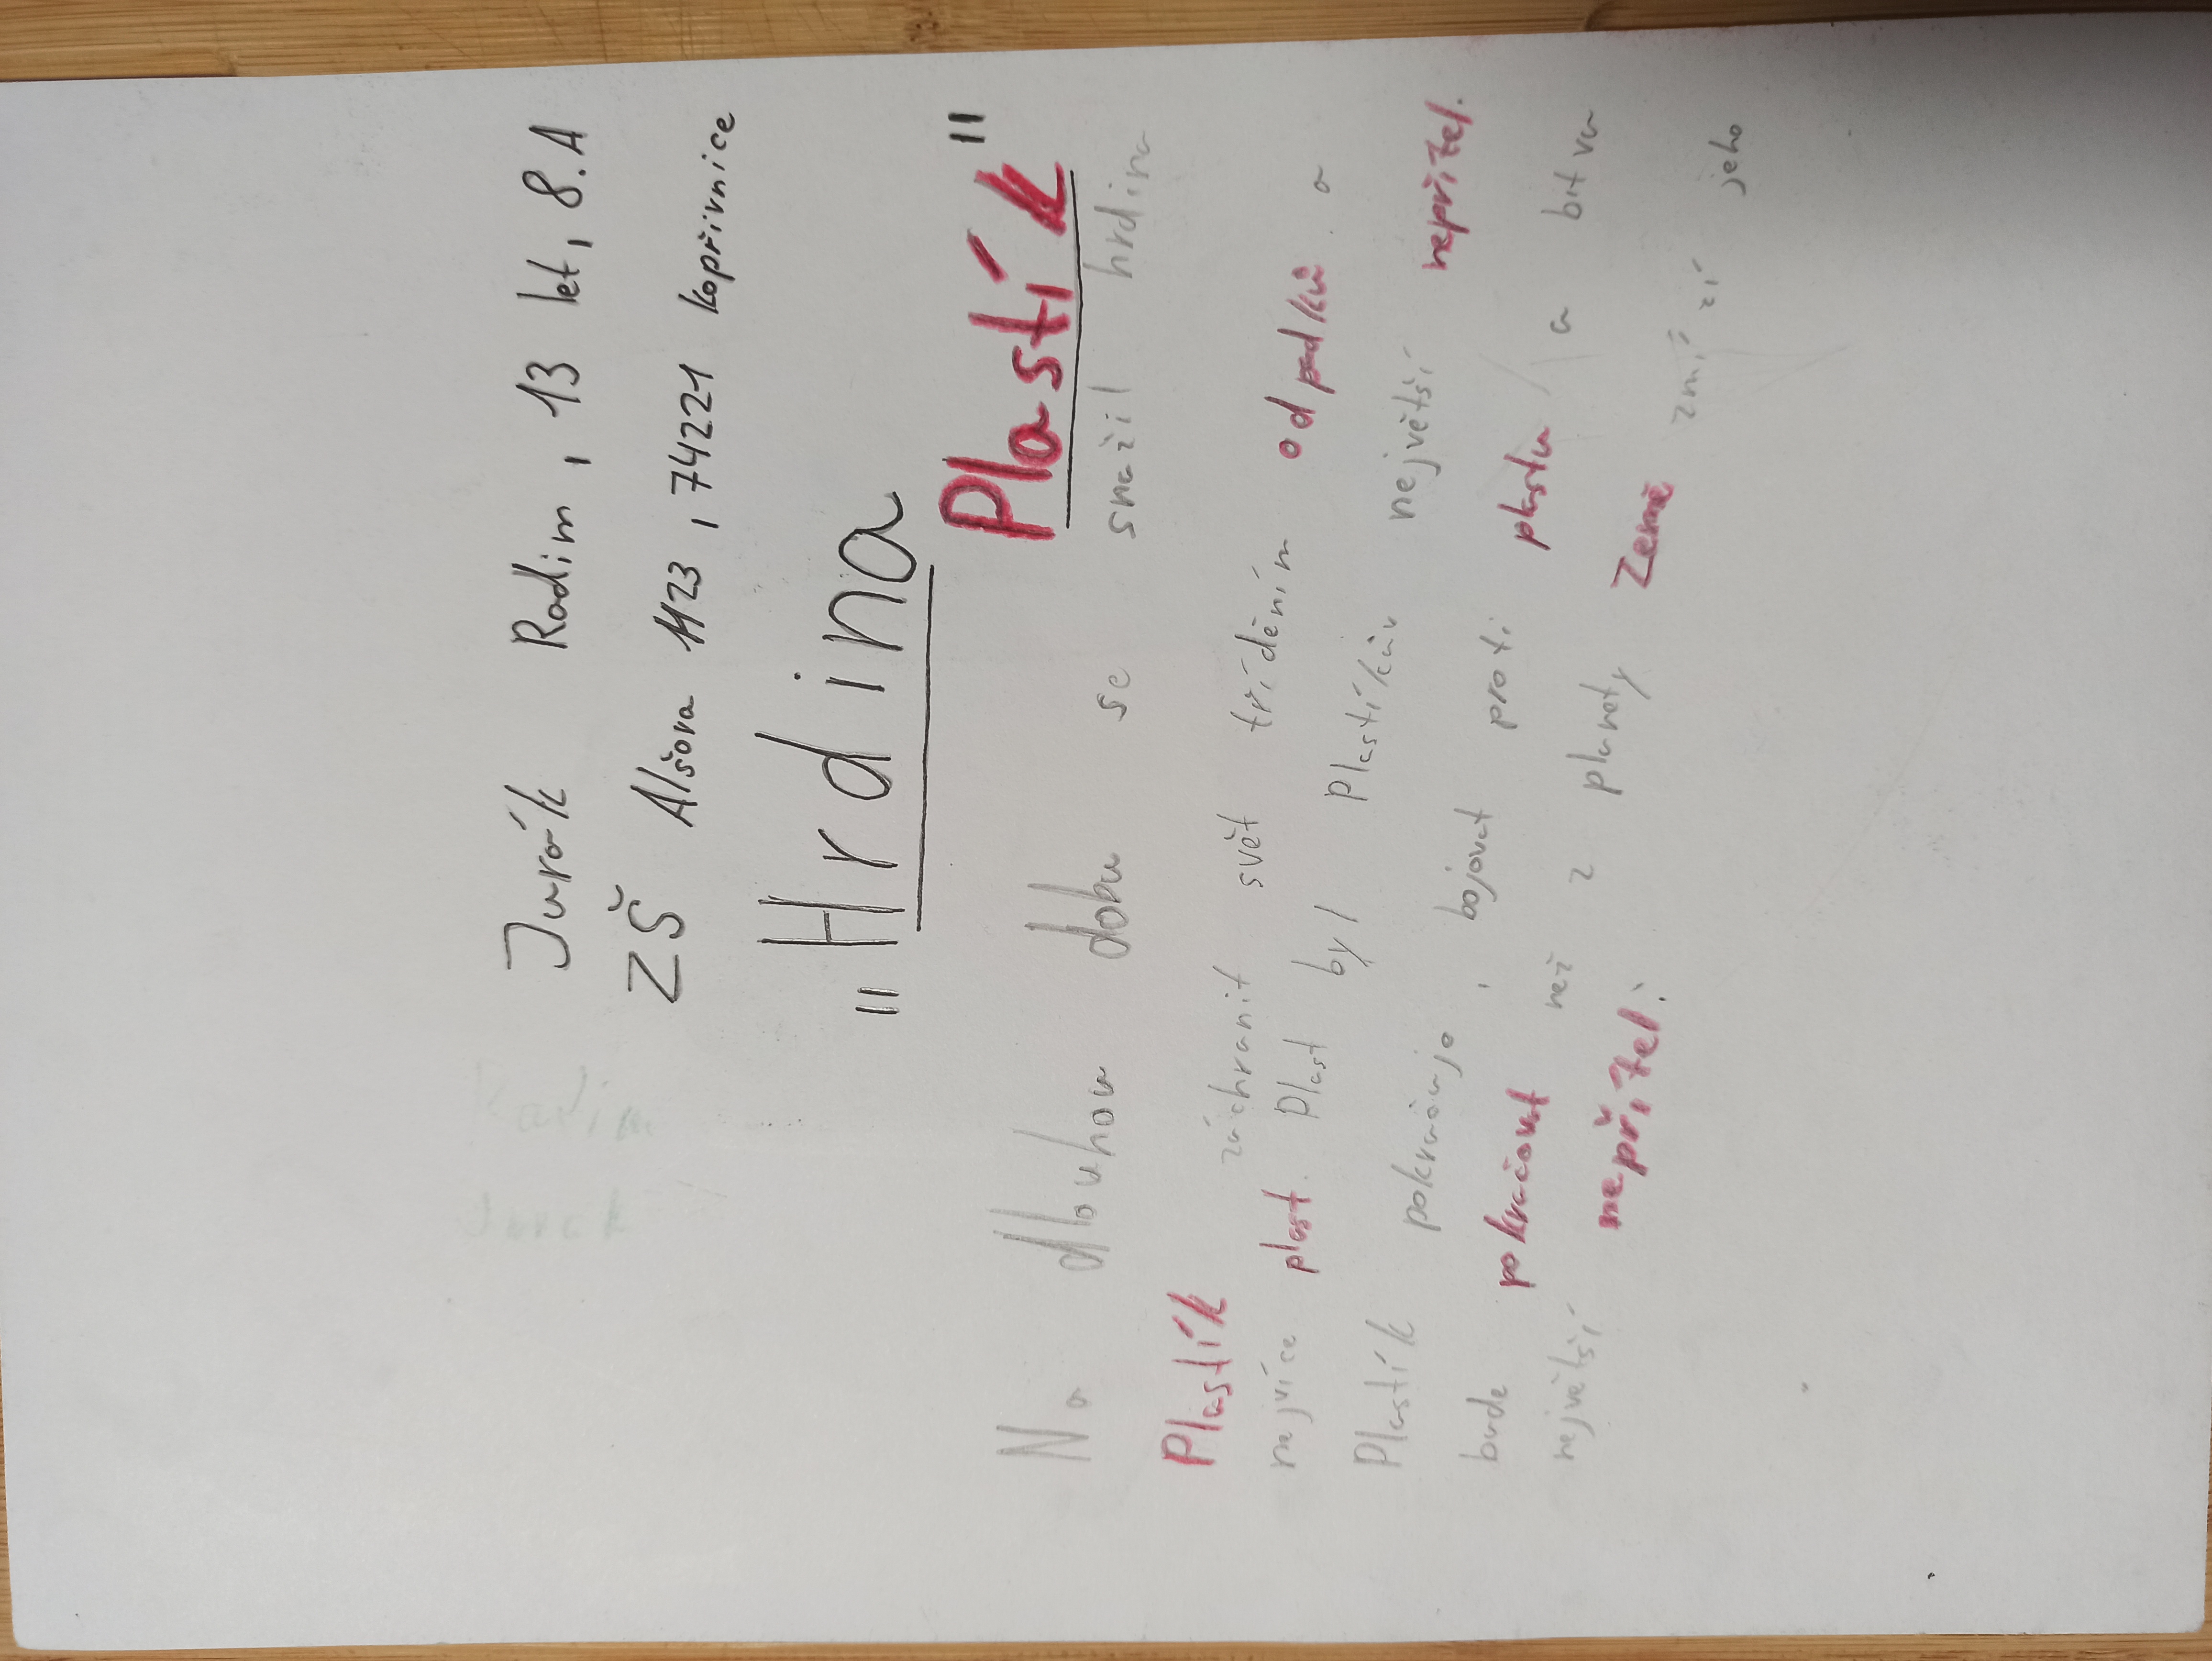 Jurák Radim, 13 let, 8.A
ZŠ Alšova 1123, 74221 Kopřivnice
„Hrdina
Plastík"
Na dlouhou dobu se snažil hrdina
Plastík záchranit svět tříděním odpadků a
nejvíce plast. Plast byl Plastíkův největší nepřítel.
Plastík pokračuje, bojovat proti plastu a bitva
bude pokračovat než z planety Země zmízí jeho
největší nepřítel.